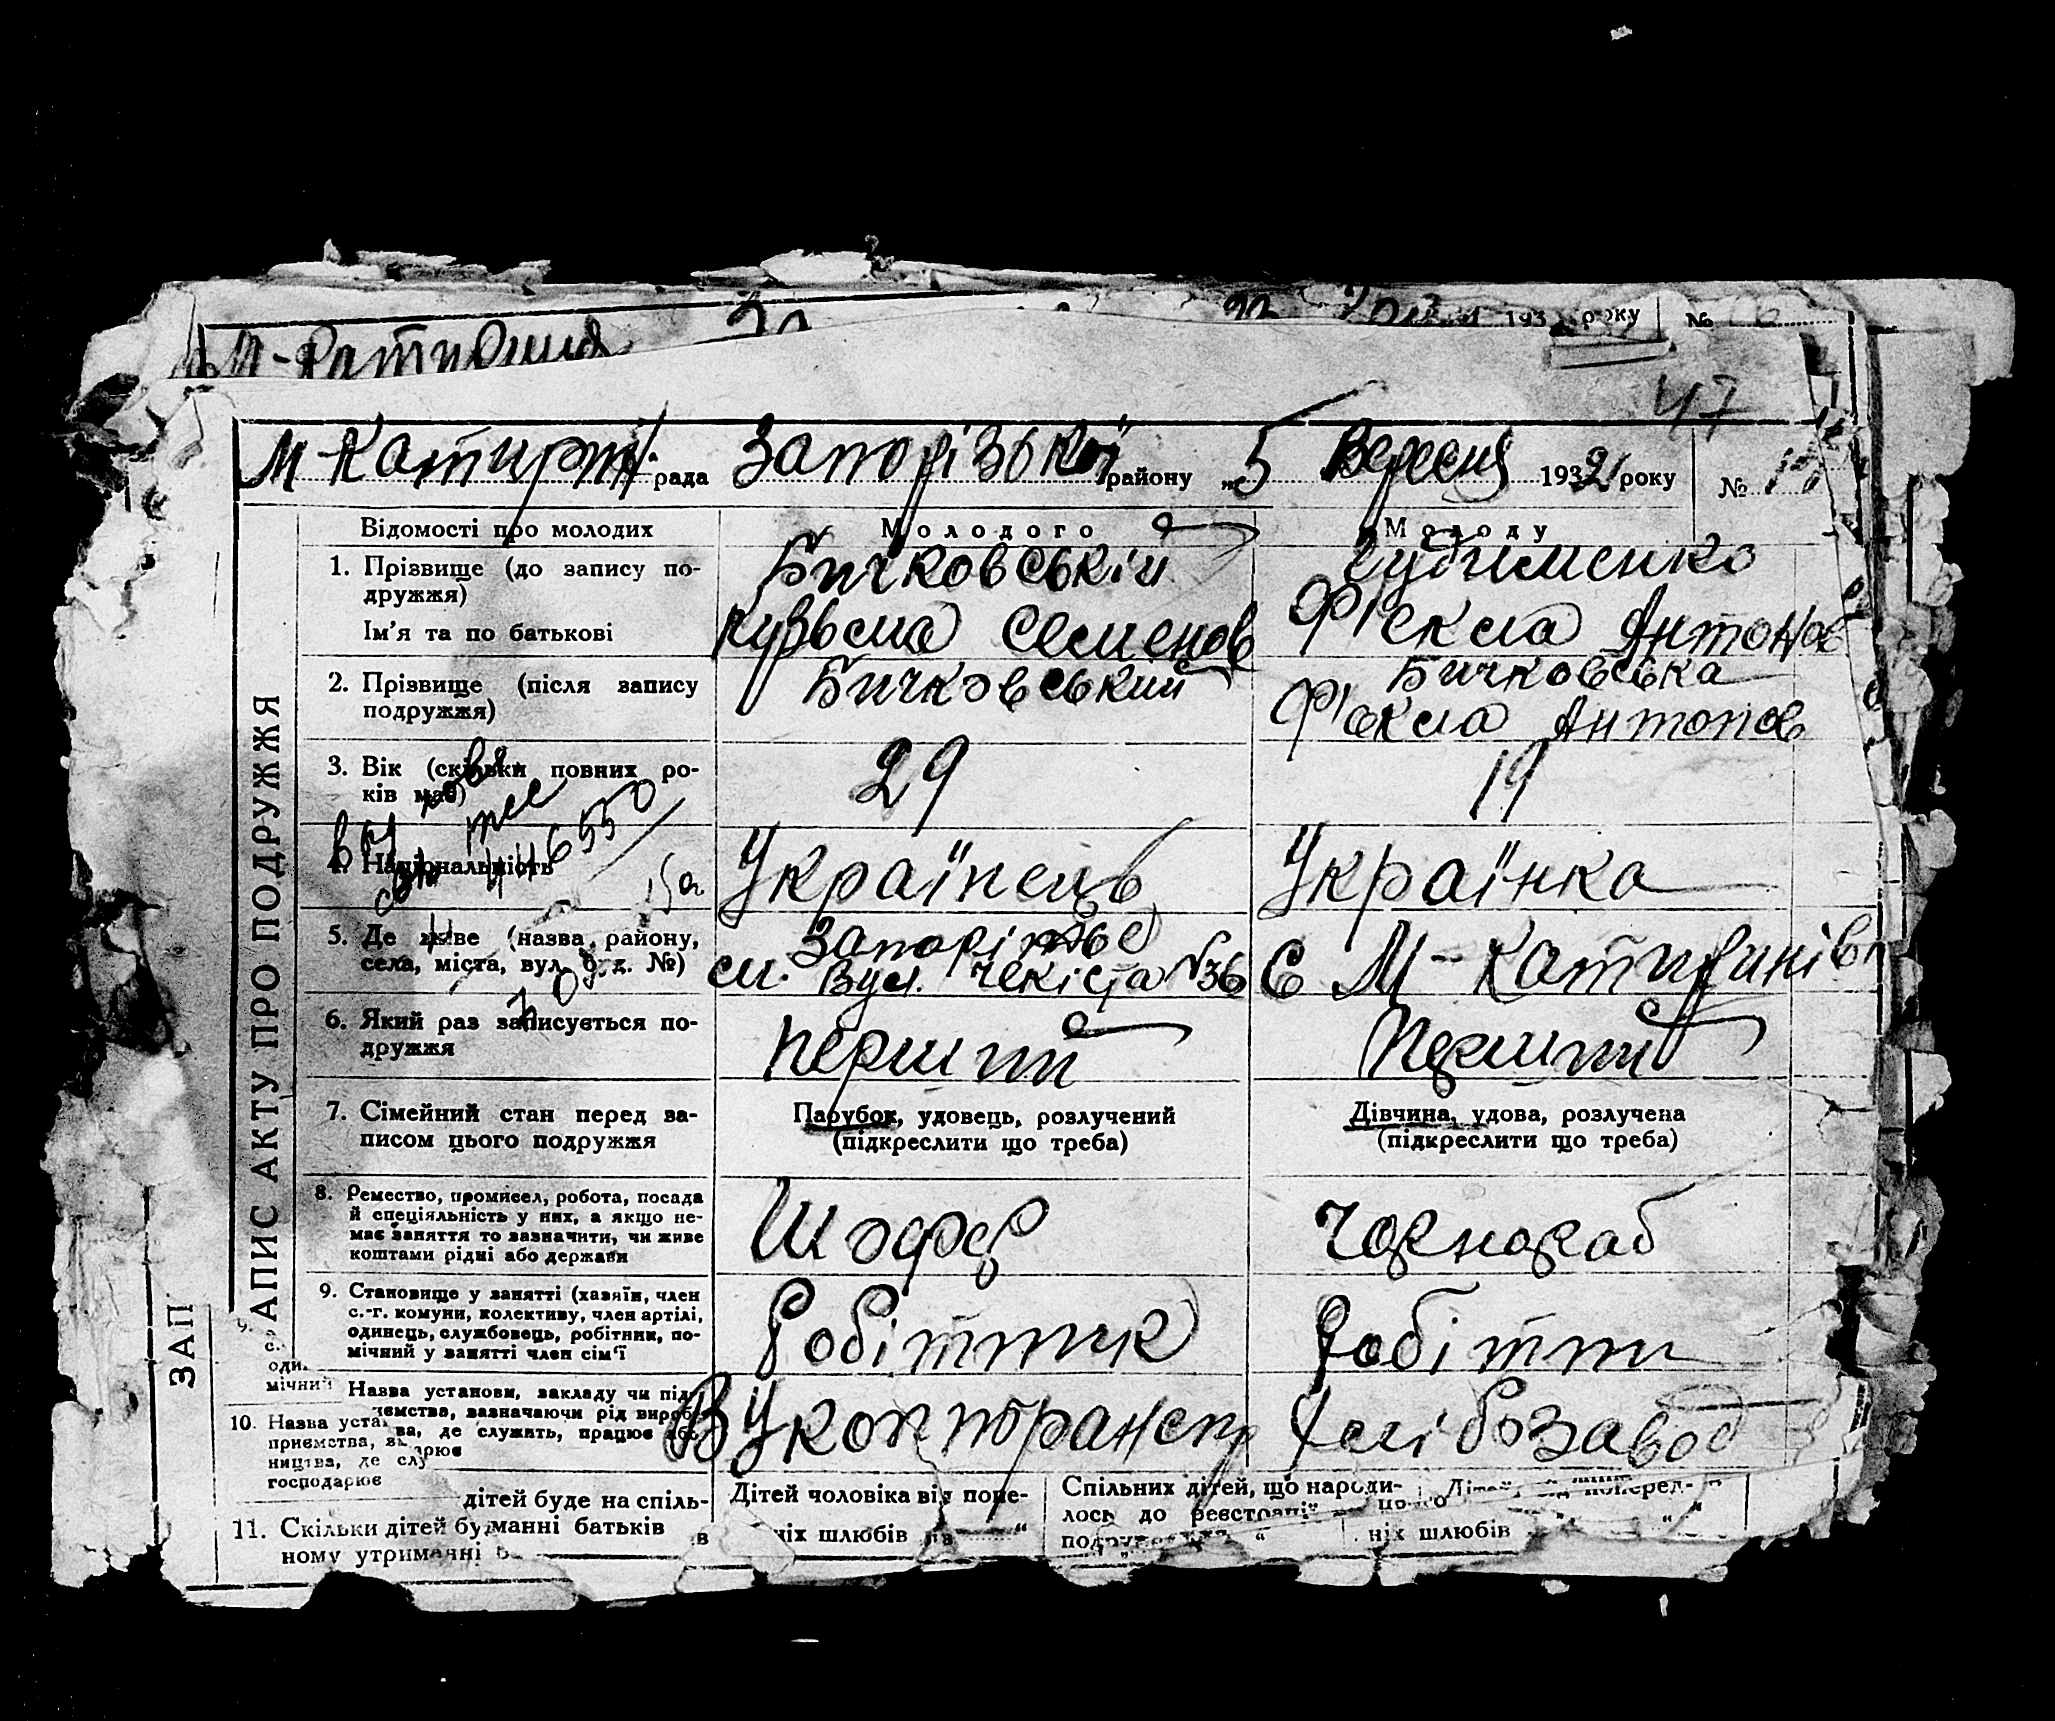 року №
47
М-Катирин рада Запорізької району „5 Вересня 1932 року №
Відомості про молодих Молодого Молоду
1. Прізвище (до запису по-
дружжя)
Бичковській
Ім'я та по батькові
Кузьма Семенов
Фекла Антонов
2. Прізвище (після запису
подружжя)
Бичковський
Бичковська
Фекла Антонов
3. Вік (скільки повних ро-
ків має)
29
19
4. Національність
446550
Українець
Українка
5. Де живе (назва району,
села, міста, вул. буд. №)
Запоріжьє
вул. Чекіста №36
с М-Катиринівк
6. Який раз записується по-
дружжя
перший
перший
7. Сімейний стан перед за-
писом цього подружжя
Парубок, удовець, розлучений
(підкреслити що треба)
Дівчина, удова, розлучена
(підкреслити що треба)
8. Ремество, промисел, робота, посада
й спеціяльність у них, а якщо не-
має заняття то зазначити, чи живе
коштами рідні або держави
Шофер
Чорнораб
9. Становище у занятті (хазяїн, член
с.-г. комуни, колективу, член артілі,
одинець, службовець, робітник, по-
мічний у занятті член сім'ї
Робітник
Робітни
Назва установи, закладу чи під-
ємства, зазначаючи рід вироб-
ва, де служить, працює або
Вукоптрансп
Хлібозавод
10. Назва уста
приємства,
ництва, де слу
господарює
дітей буде на спіль-
11. Скільки дітей бу манні батьків
ному утриманні
Дітей чоловіка від попе-
ніх шлюбів
Спільних дітей, що народи-
лось до реєстрації
ніх шлюбів
АПИС АКТУ ПРО ПОДРУЖЖЯ
ЗАП